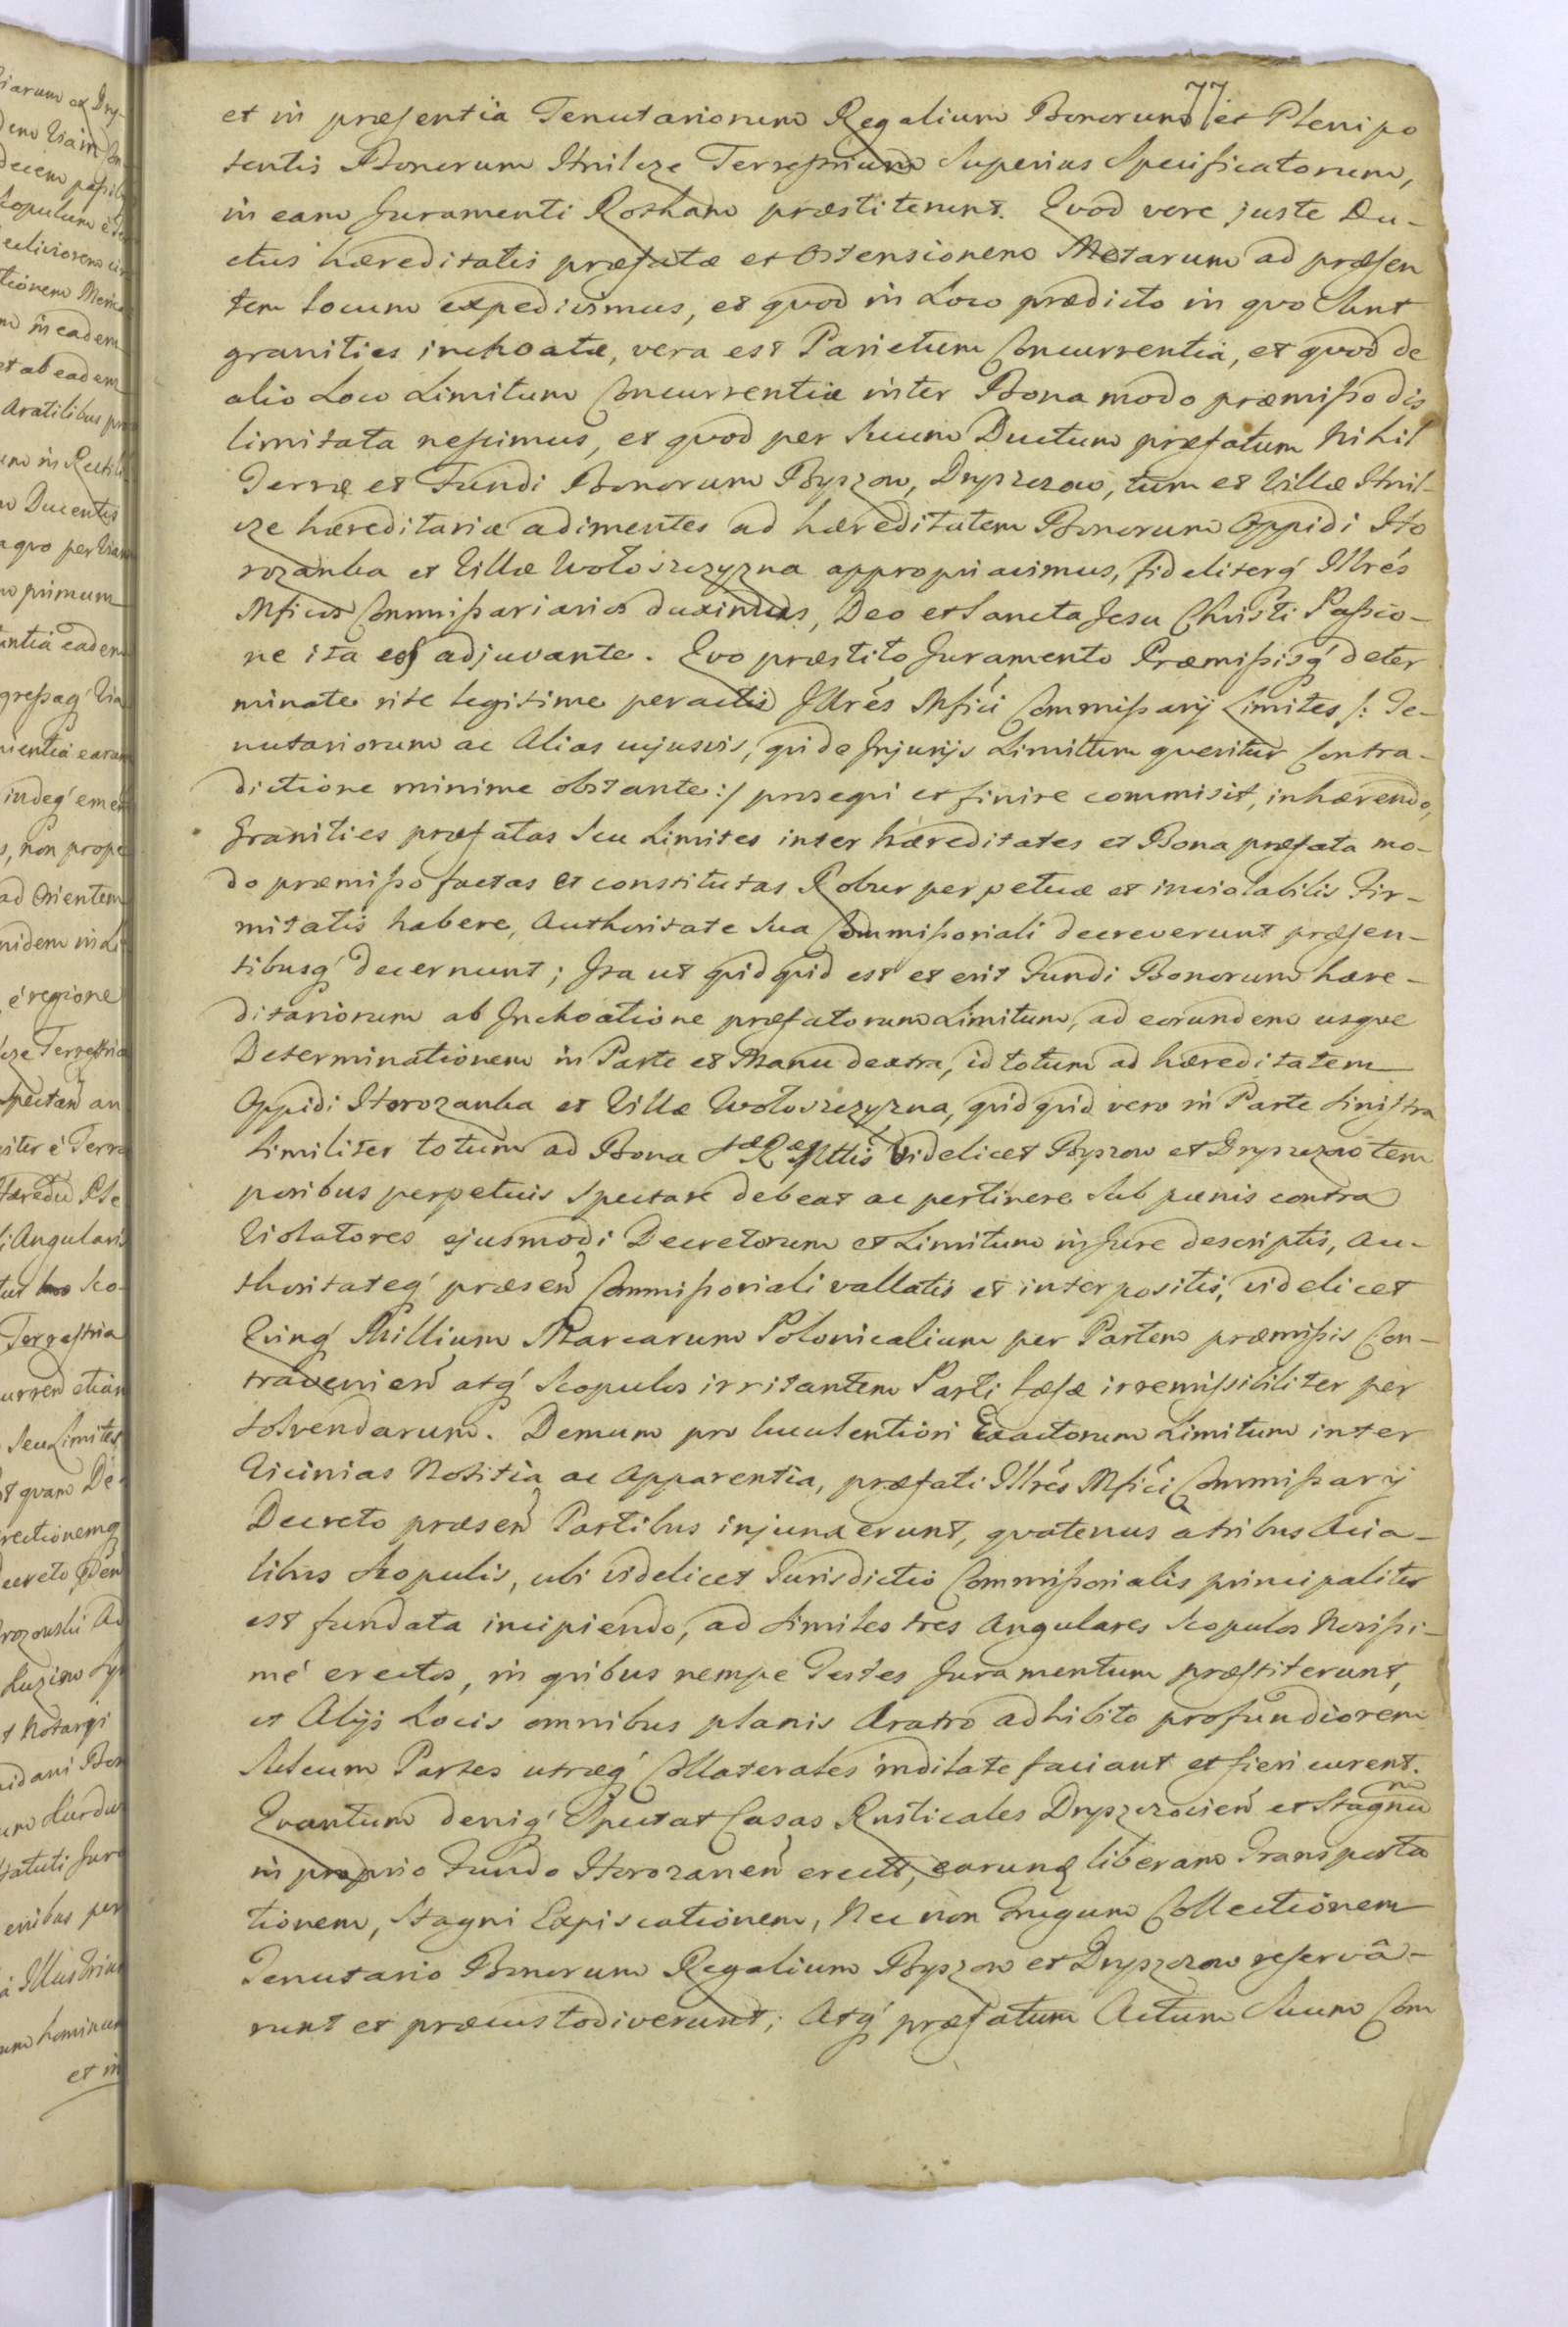 77
et in præsentia Tenutariorum Regalium Bonorum et Plenipo
tentis Bonorum Hnilcze Terrestrium Superius Specificatorum,
in eam Juramenti Rotham præstiterunt. Qvod vere juste Du-
ctus hæreditatis præfatæ et Ostensionem Metarum ad præsen
tem locum expedivimus, et qvod in Loco prædicto in qvo Sunt
granities inchoatæ, vera est Parietum Concurrentia, et qvod de
alio Loco Limitum Concurrentiæ inter Bona modo præmisso dis
limitata nescimus, et qvod per Suum Ductum præfatum Nihil
Terræ et Fundi Bonorum Byszow, Dryszczow, tum et Villæ Hnil-
cze hæreditariæ adimentes ad hæreditatem Bonorum Oppidi Ho
rozanka et Villæ Wołoszczyzna appropriavimus, fideliterq́ Illrés
Mficos Commissarios duximus, Deo et Sancta Jesu Christi Passio-
ne ita eos adjuvante. Qvo præstito Juramento Præmissisq́ deter
minate rite legitime peractis Illrés Mfici Commissarij Limites /: Te-
nutariorum ac Alias cujusvis, qvi de Injurijs Limitum qveritur Contra-
dictione minime obstante :/ proseqvi et finire commisit, inhærendo,
Granities præfatas Seu Limites inter hæreditates et Bona præfata mo-
do præmisso factas et constitutas Robur perpetuæ et inviolabilis Fir-
mitatis habere, Authoritate Sua Commissoriali decreverunt præsen-
tibusq́ decernunt; Ita ut qvidqvid est et erit Fundi Bonorum hære-
ditariorum ab Inchoatione præfatorum Limitum, ad eorundem usqve
Determinationem in Parte et Manu dextra, id totum ad hæreditatem
Oppidi Horozanka et Villæ Wołoszczyzna, qvidqvid vero in Parte Sinistra
Similiter totum ad Bona Sæ Ræ Mttis Videlicet Byszow et Dryszczow tem
poribus perpetuis Spectare debeat ac pertinere Sub pœnis contra
Violatores ejusmodi Decretorum et Limitum in Jure descriptis, Au-
thoritateq́ præsen̄ Commissoriali vallatis et interpositis, videlicet
Qvinq́ Millium Marcarum Polonicalium per Partem præmissis Con-
travenien̄ atq́ Scopulos irritantem Parti læsæ irremissibiliter per
solvendarum. Demum pro luculentiori Exactorum Limitum inter
Vicinias Notitia ac Apparentia, præfati Illrés Mfici Commissarij
Decreto præsen̄ Partibus injunxerunt, qvatenus a tribus Acia-
libus Scopulis, ubi videlicet Jurisdictio Commissorialis principaliter
est fundata incipiendo, ad Similes tres Angulares Scopulos Novissi-
mé erectos, in qvibus nempe Testes Juramentum præstiterunt,
et Alijs Locis omnibus planis Aratro adhibito profundiorem
Sulcum Partes utræq́ Collaterales inditate faciant et fieri curent.
Qvantum deniq́ Spectat Casas Rusticales Dryszczovien̄ et Stagnum
in proprio Fundo Horozanen̄ erect, earunq́ liberam Transporta
tionem, Stagni Expiscationem, Nec non Frugum Collectionem
Tenutario Bonorum Regalium Byszow et Dryszczow reservâ-
runt et præcustodiverunt; Atq́ præfatum Actum Suum Com